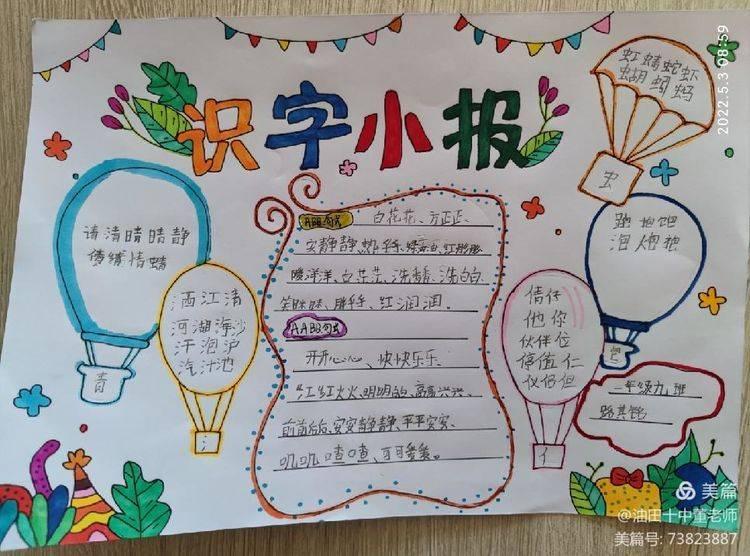 识字小报
2022.5.3 08:59
虹蜻蛇虾
蝴蚂
虫
请清晴晴静
情蜻
青
洒江清
河湖海沙
汗泡沪
汽汁池
氵
ABB词语
白花花、方正正、
安静静、红彤彤
暖洋洋、白茫茫、洗白白
笑眯眯、胖乎乎、红润润、
AABB词语
开开心心、快快乐乐、
红红火火、明明白白、高高兴兴、
前前后后、安安静静、平平安安、
叽叽喳喳、可可爱爱。
倩休
他你
伙伴位
停值仁
仪但
亻
跑抱饱
泡炮袍
包
一年级九班
美篇
@油田十中董老师
美篇号: 73823887